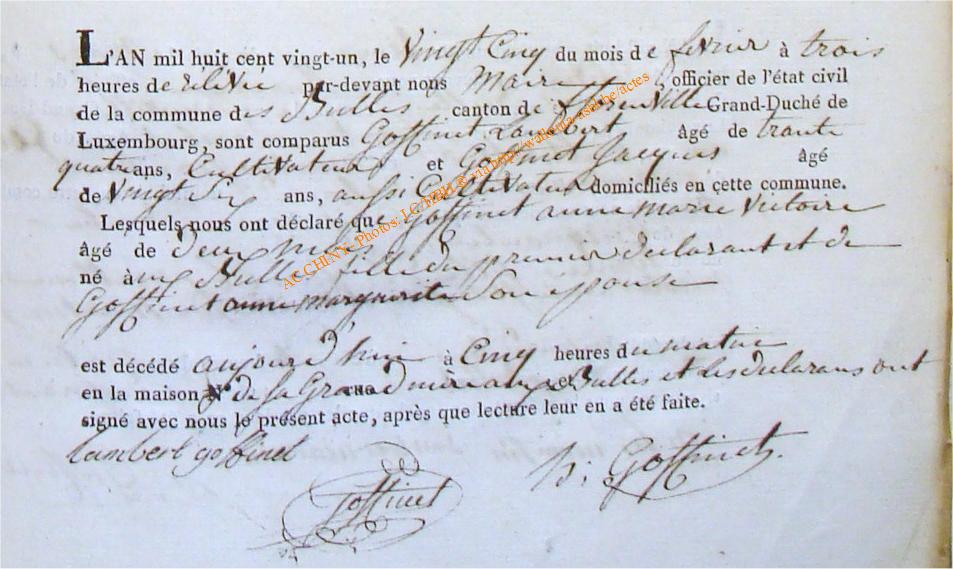 L'AN mil huit cent vingt-un, le Vingt Cinq du mois de fevrier à trois
heures de relevée par-devant nous Maire et officier de l'état civil
de la commune des Bulles canton de Grand-Duché de
Luxembourg, sont comparus Goffinet Lambert âgé de trante
quatre ans, Cultivateur et Goffinet Jacques âgé
de Vingt Six ans, aussi Cultivateur domiciliés en cette commune.
Lesquels nous ont déclaré que Goffinet anne marie Victoire
âgé de Deux mois
né à aux Bulles fille du premier declarant et de
Goffinet anne marguerite Son epouse
est décédé aujourd'hui à Cinq heures du matin
en la maison N° de sa Grand mere aux Bulles et Les declarans ont
signé avec nous le présent acte, après que lecture leur en a été faite.
lambert goffinet
Goffinet
Goffinet
ACCHINY Photos: